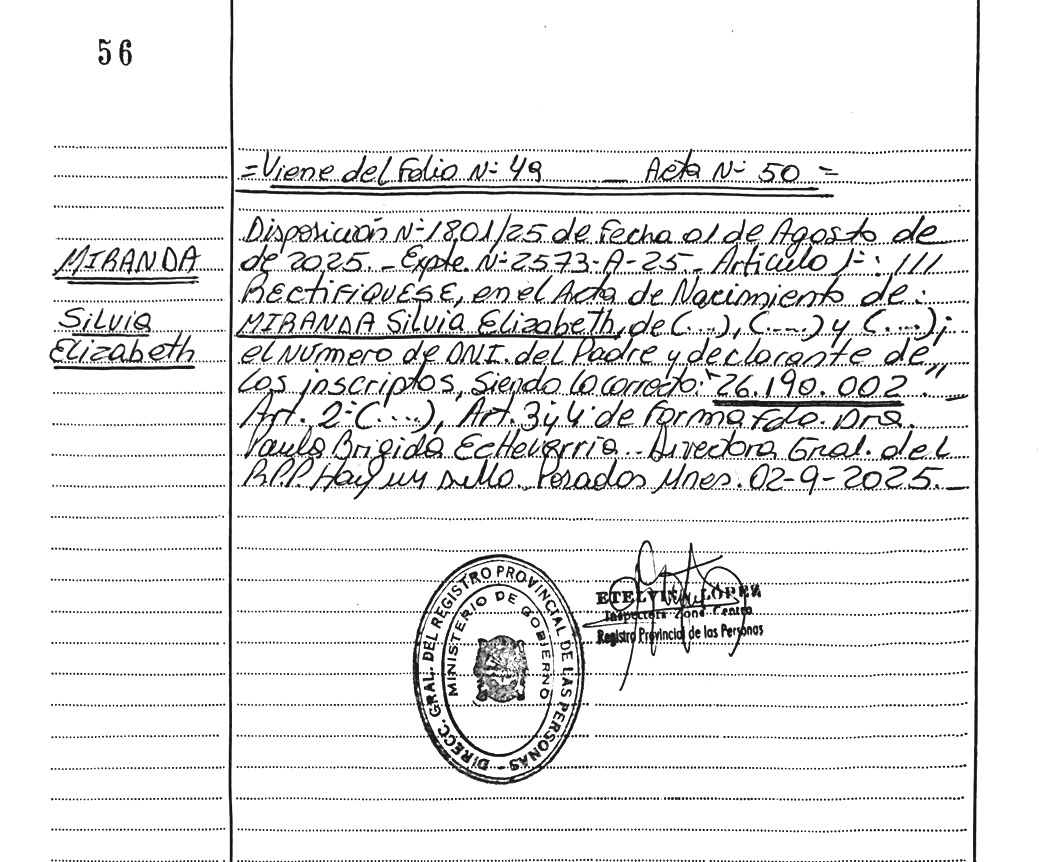 56
=Viene del Folio Nº 49 _ Acta Nº 50=
MIRANDA
Silvia
Elizabeth
Disposición Nº 1801/25 de Fecha 01 de Agosto de
de 2025._ Expte. Nº 2573-A-25_ Artículo 1º: ///
RECTIFIQUESE, en el Acta de Nacimiento de:
MIRANDA Silvia Elizabeth, de (...), (....) y (....);
el Número de DNI. del Padre y declarante de
los inscriptos, siendo lo correcto: "26.190.002"._
Art. 2º (...), Art. 3 y 4 de forma Fdo. Dra.
Paula Brigida Echevarria.. Directora Gral. del
R.P.P. Hay un sello. Posadas Mnes. 02-9-2025._
DIRECC. GRAL. DEL REGISTRO PROVINCIAL DE LAS PERSONAS -
MINISTERIO DE GOBIERNO
ETELVINA LOPEZ
Inspectora Zona Centro
Registro Provincial de las Personas